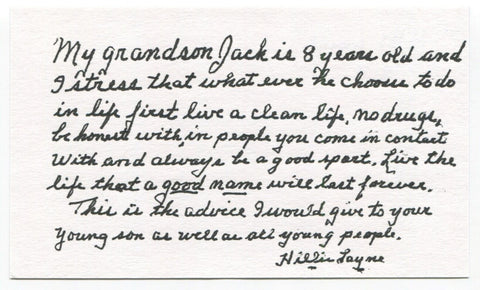 My grandson Jack is 8 years old and
I stress that what ever he choose to do
in life first live a clean life, no drugs,
be honest with, in people you come in contact
With and always be a good sport. Live the
life that a good name will last forever.
This is the advice I would give to your
young son as well as all young people.
Hillis Layne